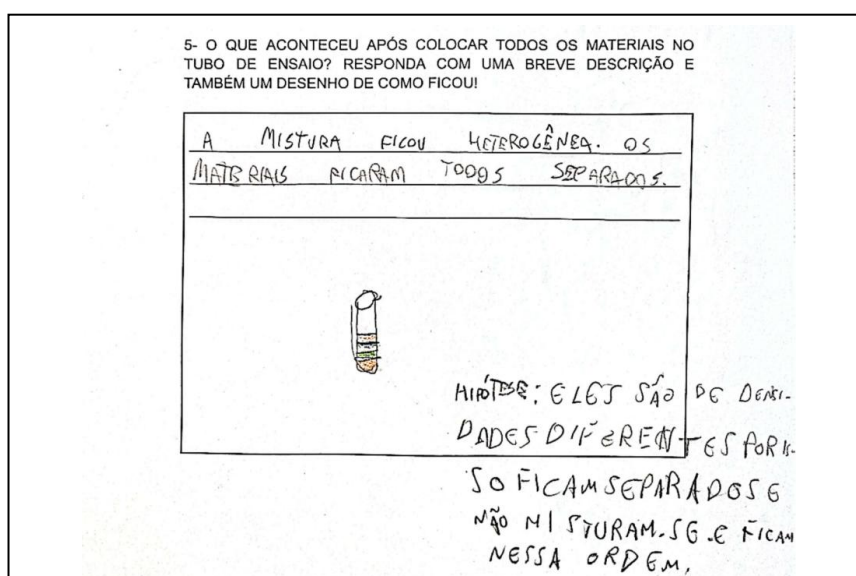 5- O QUE ACONTECEU APÓS COLOCAR TODOS OS MATERIAIS NO
TUBO DE ENSAIO? RESPONDA COM UMA BREVE DESCRIÇÃO E
TAMBÉM UM DESENHO DE COMO FICOU!
A MISTURA FICOU HETEROGÊNEA. OS
MATERIAIS FICARAM TODOS SEPARADOS.
HIPÓTESE: ELES SÃO DE DENSI-
DADES DIFERENTES POR IS-
SO FICAM SEPARADOS E
NÃO MISTURAM-SE. E FICAM
NESSA ORDEM.